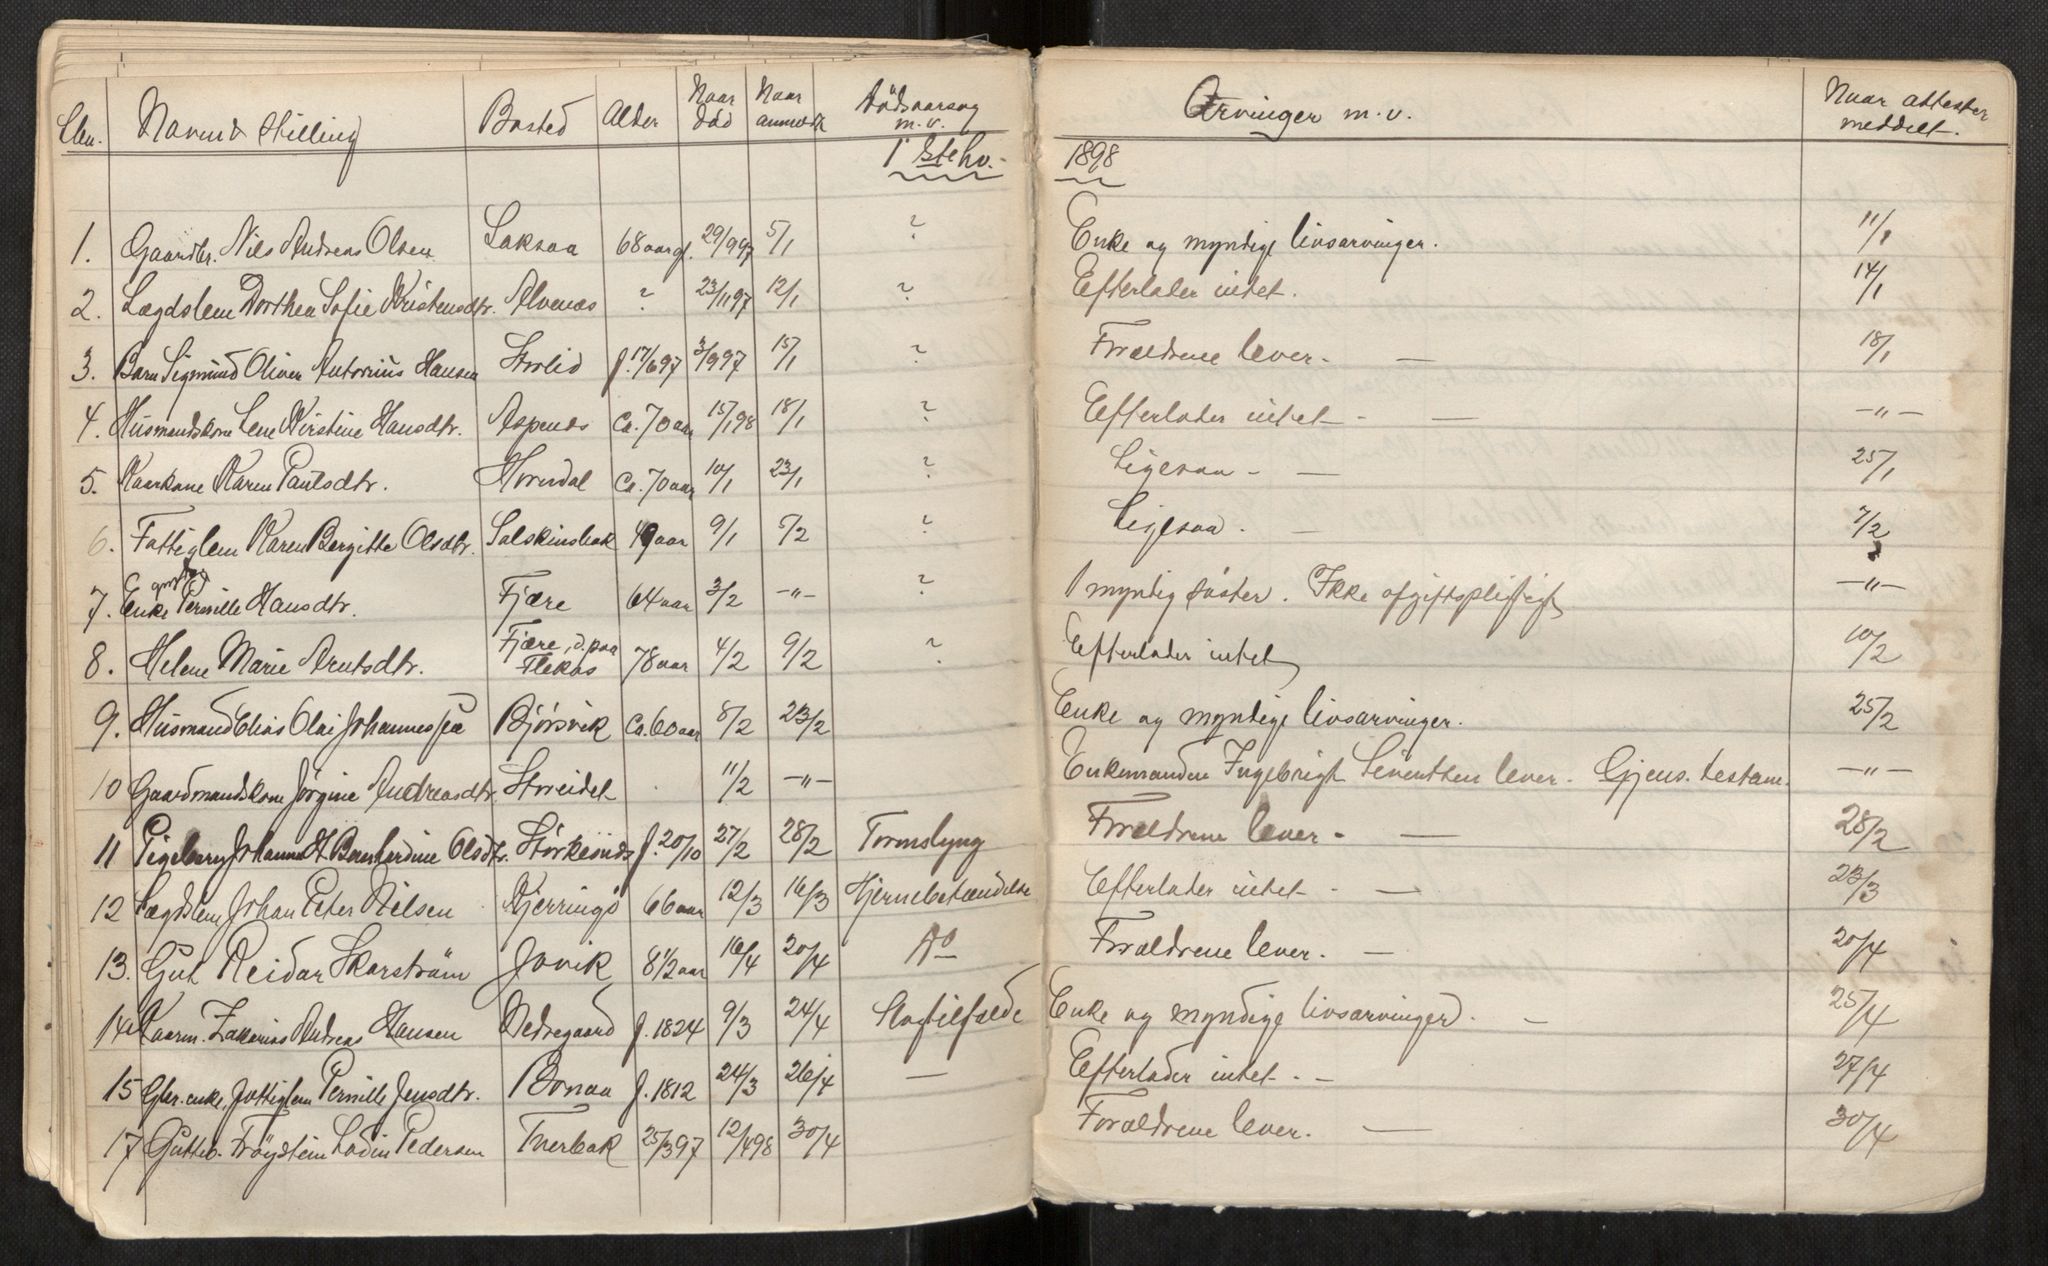 No. Navn & Stilling Bosted Alder Naar død Naar anmeldt Dødsaarsag m.v. Arvinger m.v. Naar attester meddelt.
1ste hv. 1898
1. Gaardbr. Nils Andreas Olsen Laksaa 68 aar gl. 29/9 97 5/1 ? Enke og myndige livsarvinger. 11/1
2. Lægdslem Dorthea Sofie Kristensdtr. Alvenes ? 23/11 97 12/1 ? Efterlader intet. 14/1
3. Barn Sigmund Oliver Antonius Hansen Storlid f. 17/6 97 3/9 97 15/1 ? Forældrene lever. — 18/1
4. Husmandskone Lene Kirstine Hansdtr. Aspenes Ca. 70 aar 15/1 98 18/1 ? Efterlader intet — — -"-
5. Kaarkone Karen Paulsdtr. Horndal Ca. 70 aar 10/1 23/1 ? Ligesaa — — 25/1
6. Fattiglem Karen Bergitte Olsdtr. Solskinsbak 49 aar 9/1 5/2 ? Ligesaa. — 7/2
7. Enke Pernille Hansdtr. Fjære 64 aar 3/2 -"- ? 1 myndig søster. Ikke afgiftspligtigt -"-
8. Helene Marie Arntsdtr. Fjære, d. paa Flekås 78 aar 4/2 9/2 ? Efterlader intet 10/2
9. Husmand Elias Olai Johannessen Bjørsvik Ca. 60 aar 8/2 23/2 Enke og myndige livsarvinger. 25/2
10 Gaardmandskone Jørgine Andreasdtr. Storeidet 11/2 -"- Enkemanden Ingebrigt Sivertsen lever. Gjens. testam. -"-
11 Pigebarn Johanna H Bernhardine Olsdtr. Størkesnes f. 20/10 27/2 28/2 Tarmslyng Forældrene lever. — 28/2
12 Lægdslem Johan Peter Nilsen Kjerringø 66 aar 12/3 16/3 Hjernebetændelse Efterlader intet. — 23/3
13. Gut Reidar Skarstrøm Jovik 8 1/2 aar 16/4 20/4 Do Forældrene lever. — 20/4
14 Kaarm. Zakarias Andreas Hansen Nedregaard f. 1824 9/3 24/4 Slagtilfælde Enke og myndige livsarvinger. — 25/4
15 Gbr. enke, fattiglem Pernille Jensdtr. Bonaa f. 1812 24/3 26/4 — Efterlader intet. — 27/4
17 Gutteb. Frøystein Lodin Pedersen Tverbak 25/3 97 12/4 98 30/4 Forældrene lever. — 30/4